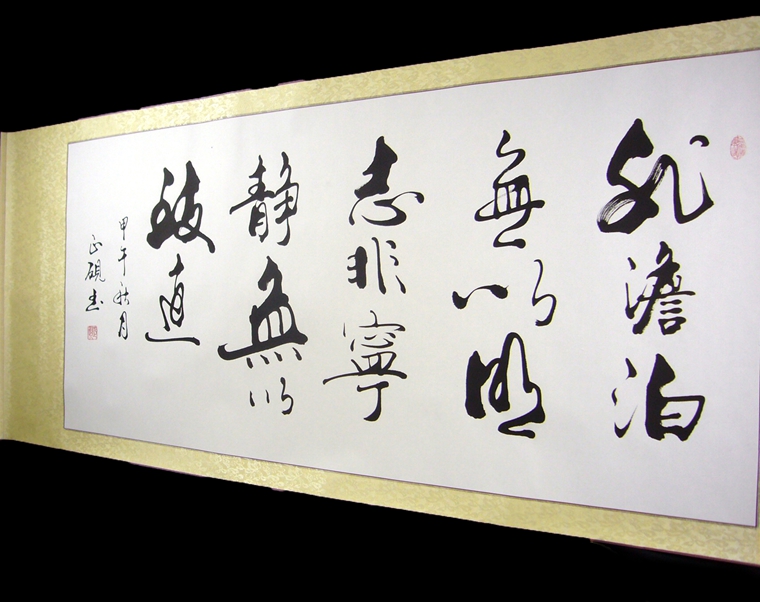 非澹泊
無以明
志非寧
静無以
致遠
甲午秋月
正硯书